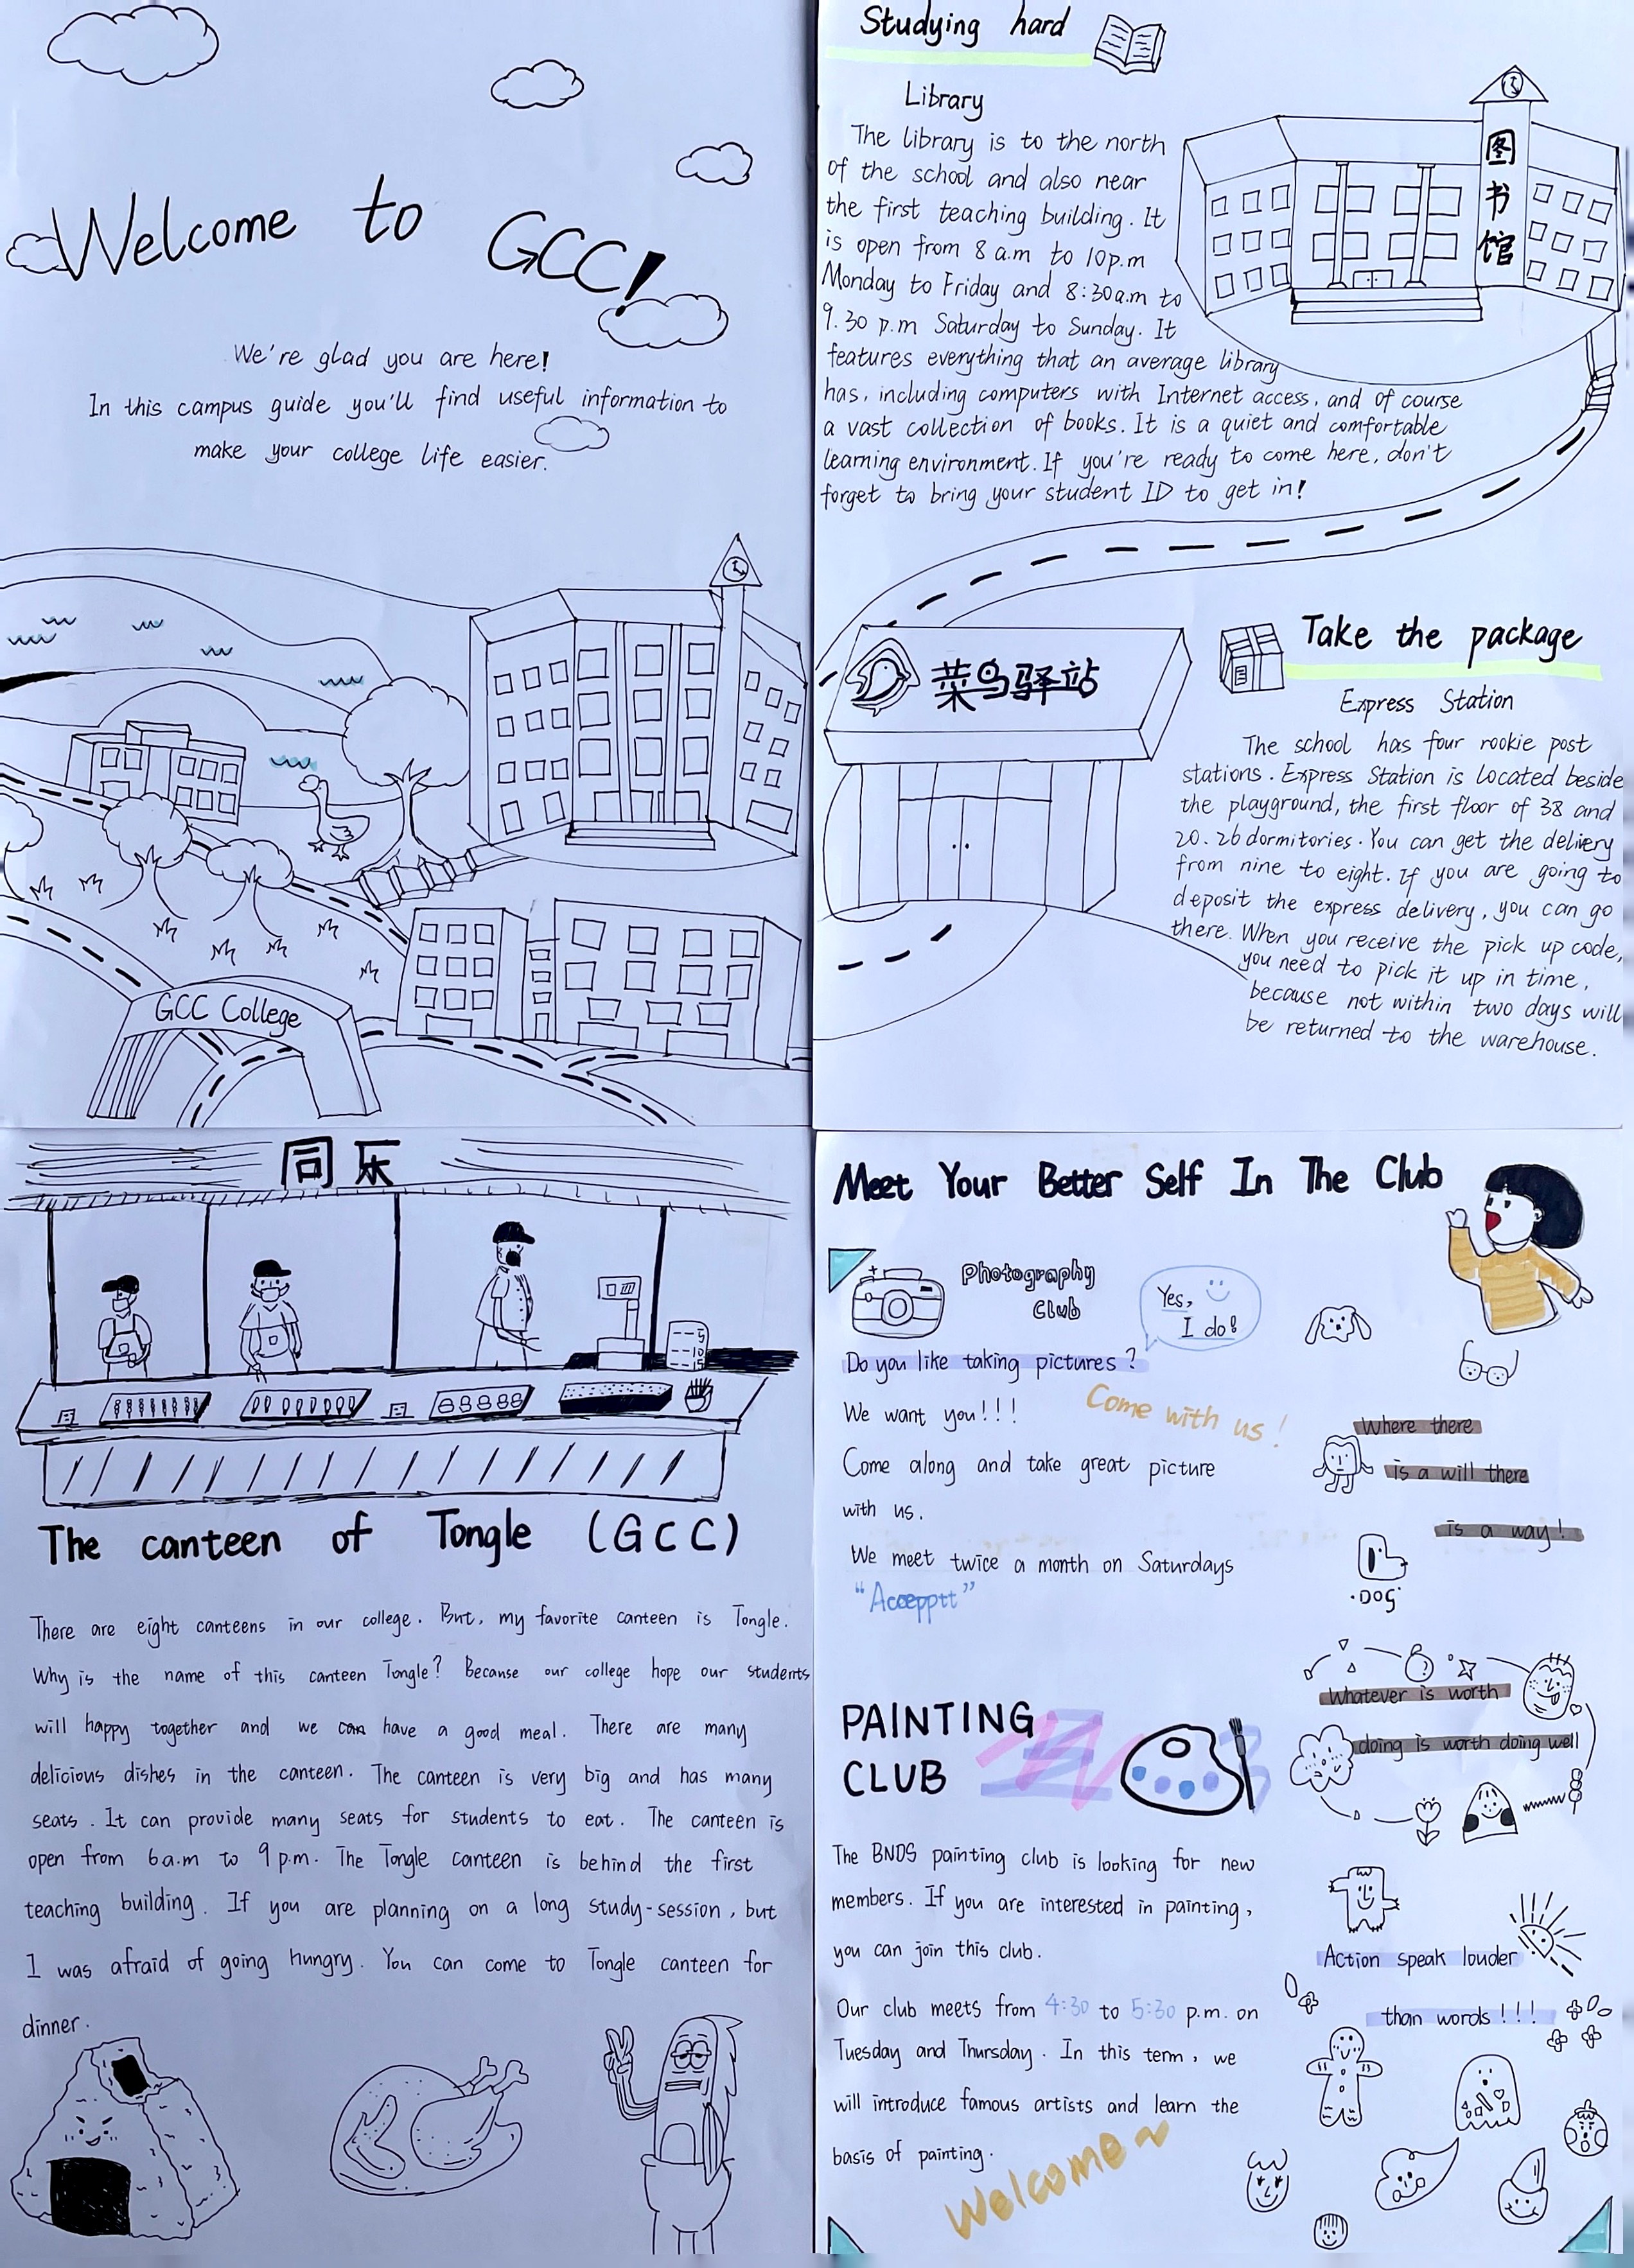 Welcome to GCC!
We're glad you are here!
In this campus guide you'll find useful information to
make your college life easier.
GCC College
Studying hard
Library
The library is to the north
of the school and also near
the first teaching building. It
is open from 8 a.m to 10p.m
Monday to Friday and 8:30a.m to
9.30 p.m Saturday to Sunday. It
features everything that an average library
has, including computers with Internet access, and of course
a vast collection of books. It is a quiet and comfortable
learning environment. If you're ready to come here, don't
forget to bring your student ID to get in!
图
书
馆
菜鸟驿站
Take the package
Express Station
The school has four rookie post
stations. Express Station is located beside
the playground, the first floor of 38 and
20.26 dormitories. You can get the delivery
from nine to eight. If you are going to
deposit the express delivery, you can go
there. When you receive the pick up code,
you need to pick it up in time,
because not within two days will
be returned to the warehouse.
同乐
5
10
15
The canteen of Tongle (GCC)
There are eight canteens in our college. But, my favorite canteen is Tongle.
Why is the name of this canteen Tongle? Because our college hope our students
will happy together and we can have a good meal. There are many
delicious dishes in the canteen. The canteen is very big and has many
seats. It can provide many seats for students to eat. The canteen is
open from 6a.m to 9 p.m. The Tongle canteen is behind the first
teaching building. If you are planning on a long study-session, but
I was afraid of going hungry. You can come to Tongle canteen for
dinner.
Meet Your Better Self In The Club
Photography
Club
Yes,
I do!
Do you like taking pictures?
We want you!!!
Come with us!
Come along and take great picture
with us.
We meet twice a month on Saturdays
"Accepptt"
Where there
is a will there
is a way!
·DOG·
PAINTING
CLUB
Whatever is worth
doing is worth doing well
The BNDS painting club is looking for new
members. If you are interested in painting,
you can join this club.
Our club meets from 4:30 to 5:30 p.m. on
Tuesday and Thursday. In this term, we
will introduce famous artists and learn the
basis of painting.
Welcome~
Action speak louder
than words!!!